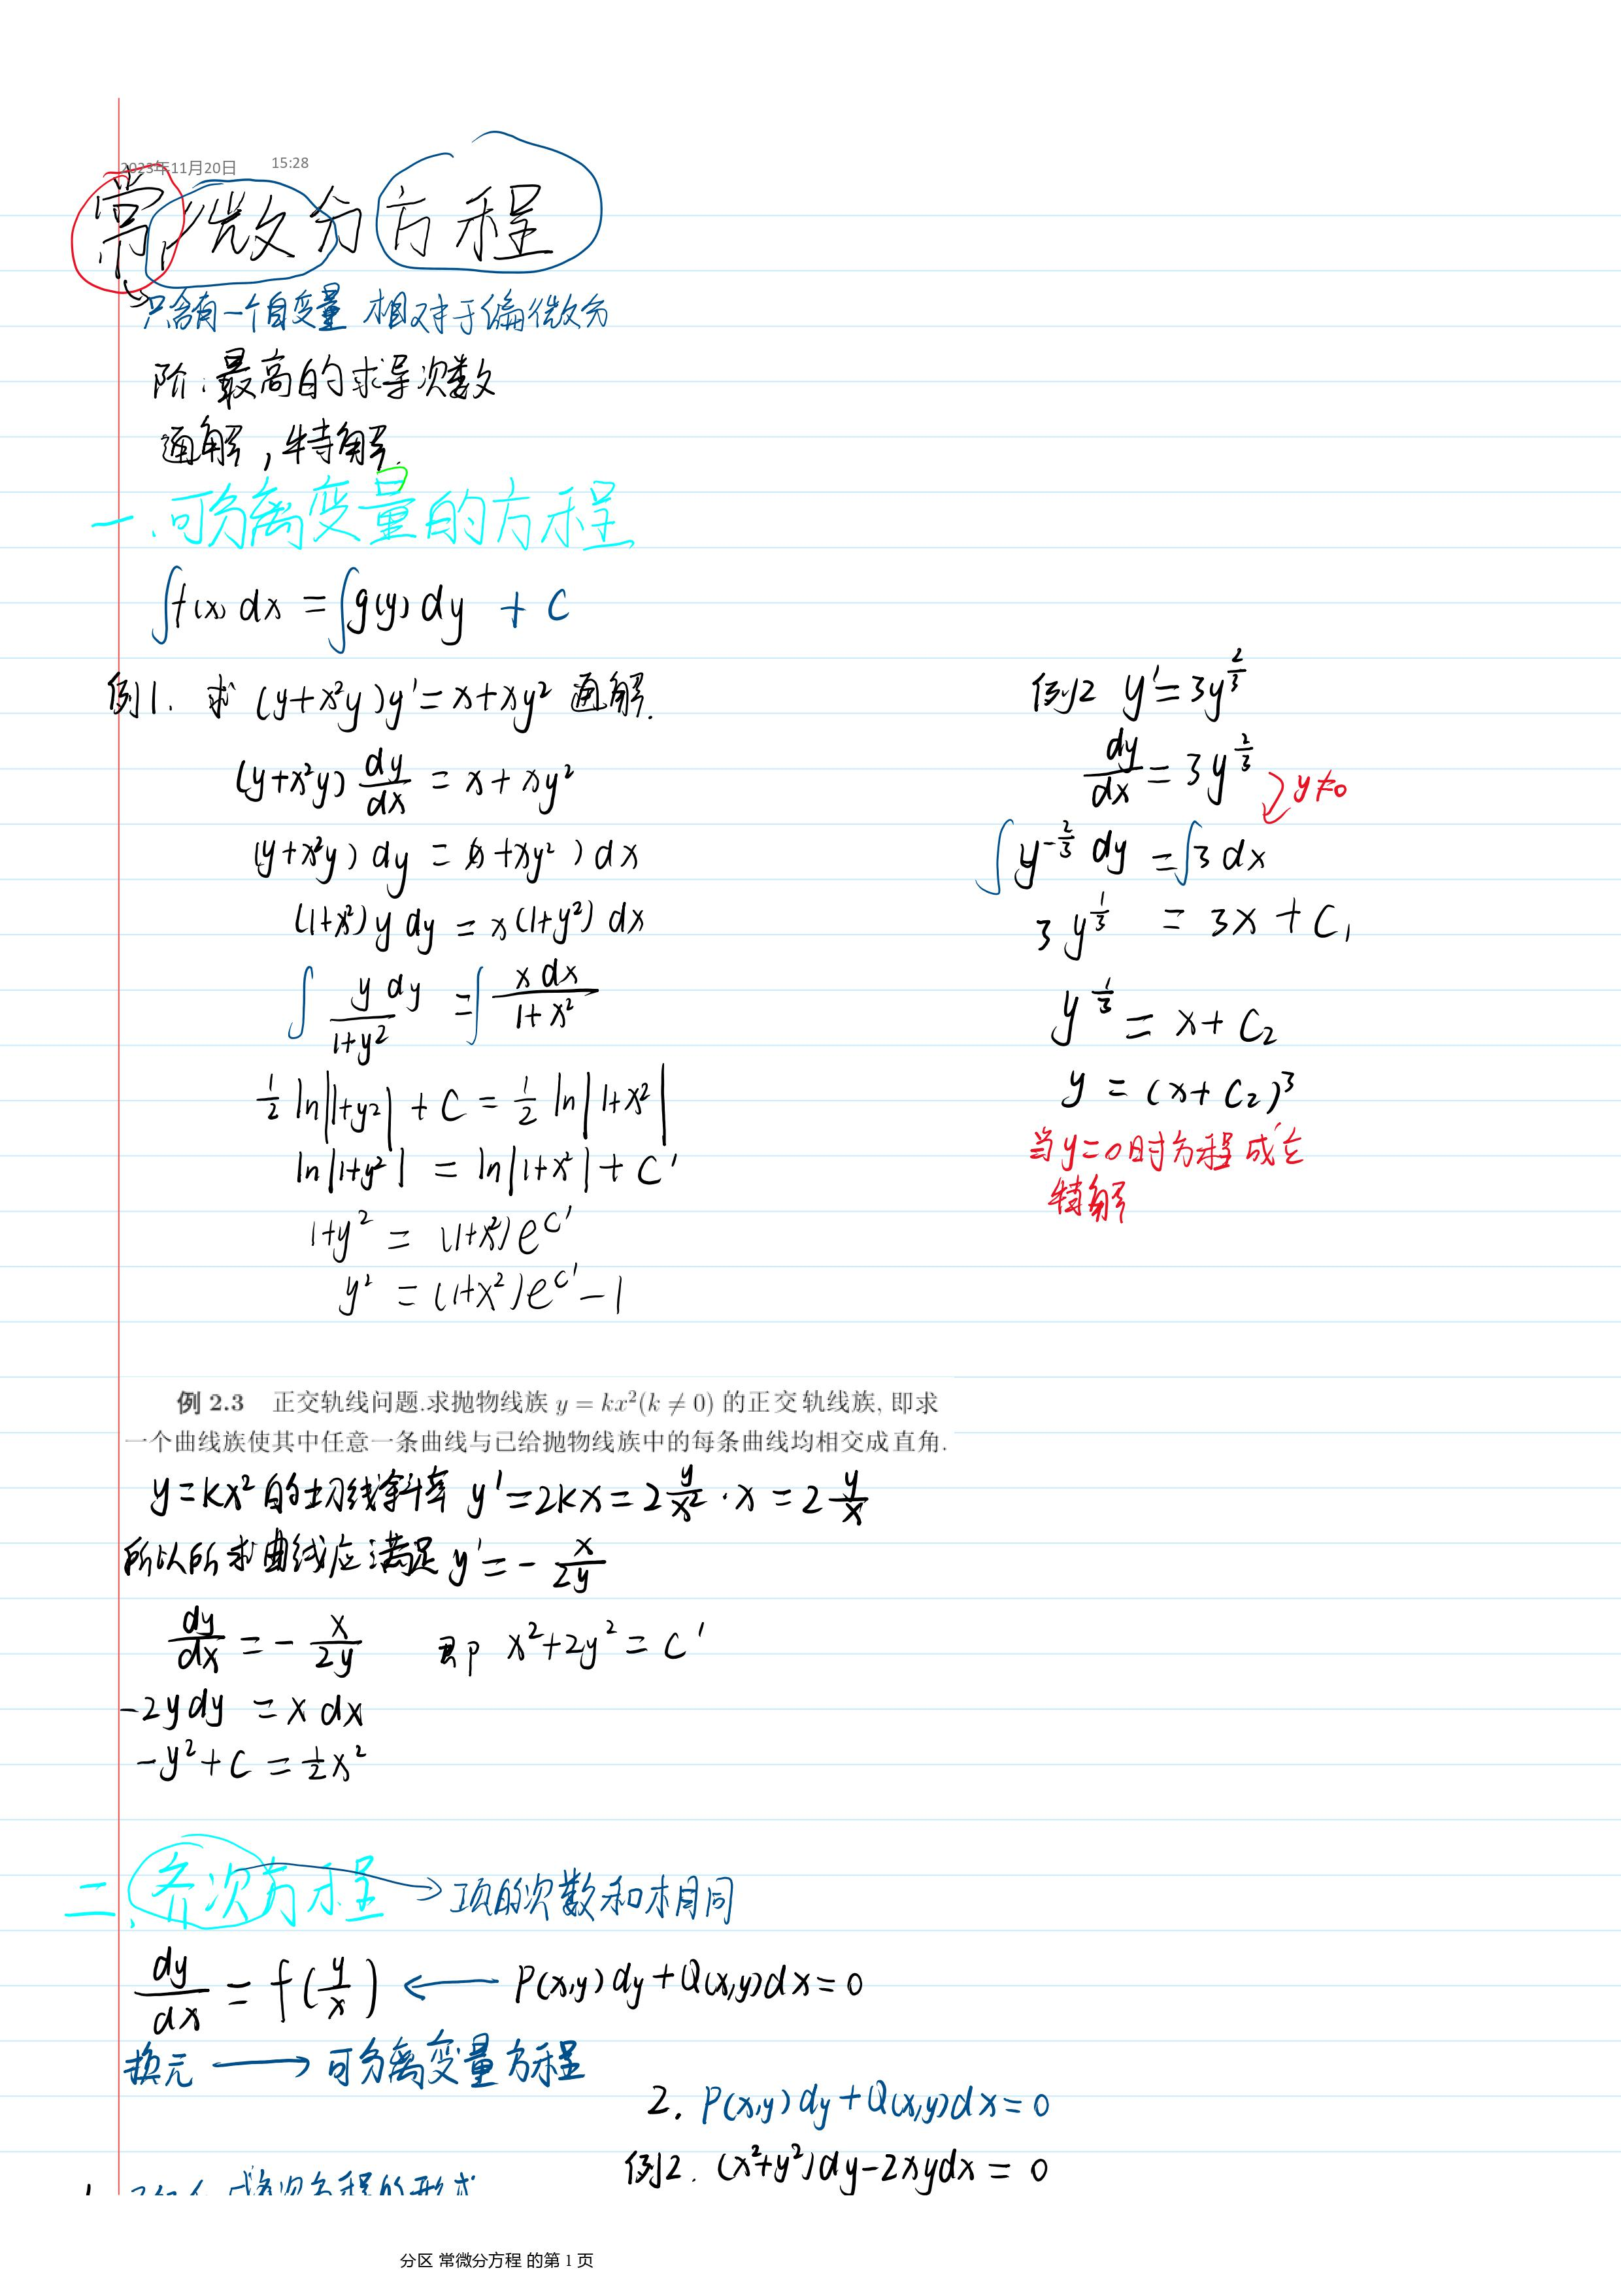 2023年11月20日 15:28
常微分方程
只含有一个自变量 相对于偏微分
阶:最高的求导次数
通解,特解.
一.可分离变量的方程
∫f(x)dx = ∫g(y)dy + C
例1. 求 (y+x²y)y' = x+xy² 通解.
(y+x²y) dy/dx = x+xy²
(y+x²y)dy = (x+xy²)dx
(1+x²)y dy = x(1+y²)dx
∫ y dy/(1+y²) = ∫ x dx/(1+x²)
½ ln|1+y²| + C = ½ ln|1+x²|
ln|1+y²| = ln|1+x²| + C'
1+y² = (1+x²)e^C'
y² = (1+x²)e^C' - 1
例2 y' = 3y^(2/3)
dy/dx = 3y^(2/3)
y≠0
∫y^(-2/3) dy = ∫3dx
3y^(1/3) = 3x + C₁
y^(1/3) = x + C₂
y = (x+C₂)³
当y=0时方程成立
特解
例 2.3 正交轨线问题.求抛物线族 y = kx²(k ≠ 0) 的正交轨线族, 即求
一个曲线族使其中任意一条曲线与已给抛物线族中的每条曲线均相交成直角.
y=kx²的切线斜率 y'=2kx=2 y/x² · x = 2 y/x
所以所求曲线应满足 y' = - x/2y
dy/dx = - x/2y 即 x²+2y² = C'
-2y dy = x dx
-y² + C = ½x²
二.齐次方程 → 项的次数和相同
dy/dx = f(y/x) ← P(x,y)dy+Q(x,y)dx=0
换元 → 可分离变量方程
2. P(x,y)dy+Q(x,y)dx=0
例2. (x²+y²)dy-2xydx = 0
分区 常微分方程 的第 1 页